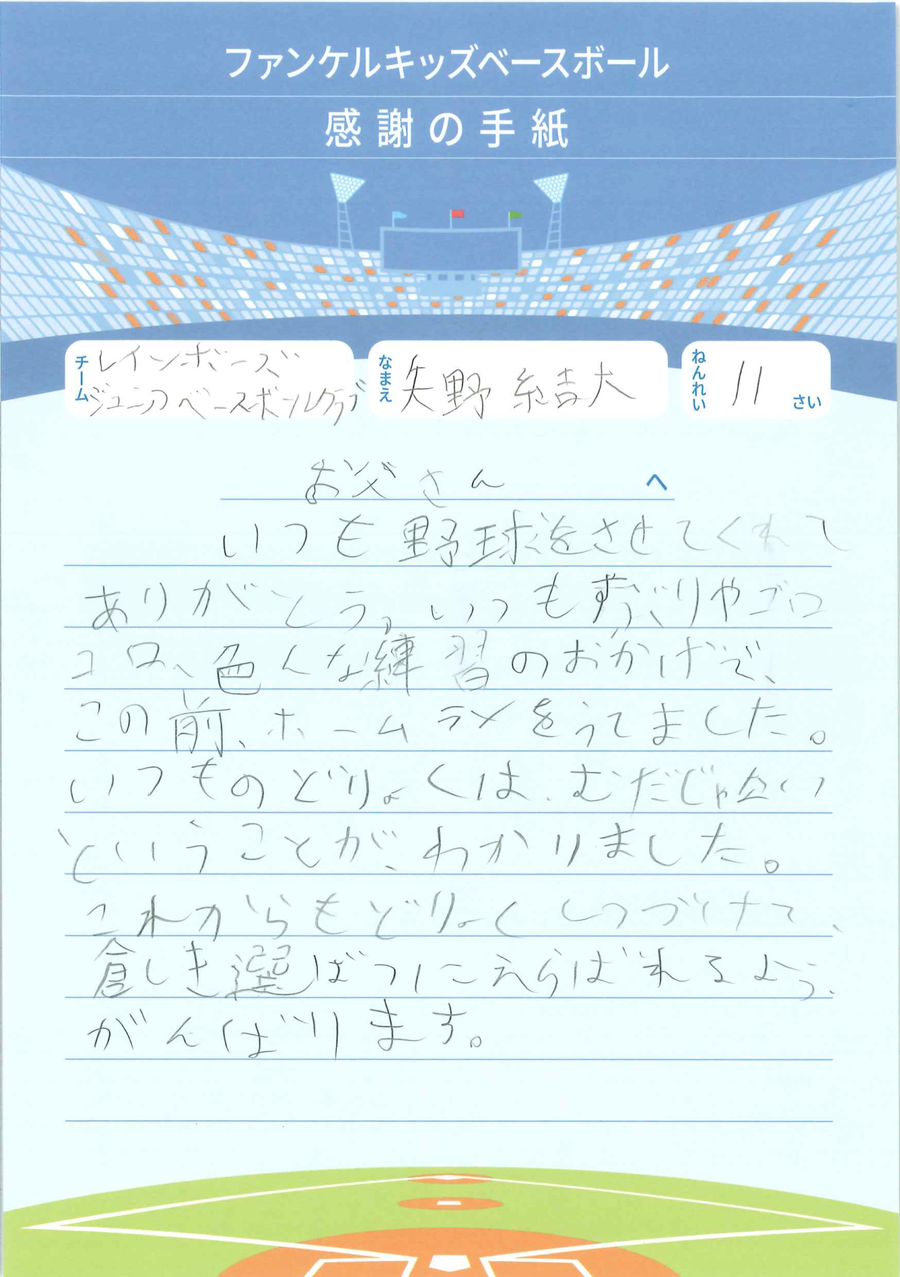 ファンケルキッズベースボール
感謝の手紙
チーム レインボーズ
ジュニアベースボールクラブ
なまえ 矢野 結大
ねんれい 11 さい
お父さん へ
いつも野球をさせてくれて
ありがとう。いつもすぶりやゴロ
コロ、色んな練習のおかげで、
この前、ホームランをうてました。
いつものどりょくは、むだじゃない
ということが、わかりました。
これからもどりょくしつづけて、
倉しき選ばつにえらばれるよう、
がんばります。